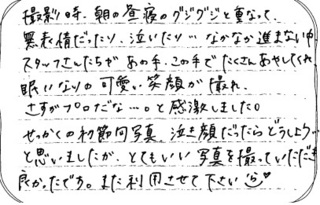 撮影時、朝の昼寝のグジグジと重なって、
無表情だったり、泣いたり…なかなか進まない中
スタッフさんたちがあの手、この手でたくさんあやしてくれ、
眠いなりの可愛い笑顔が撮れ、
さすがプロだな…。と感激しました。
せっかくの初節句写真、泣き顔だったらどうしよう…
と思いましたが、とてもいい写真を撮っていただき
良かったです。また利用させて下さい